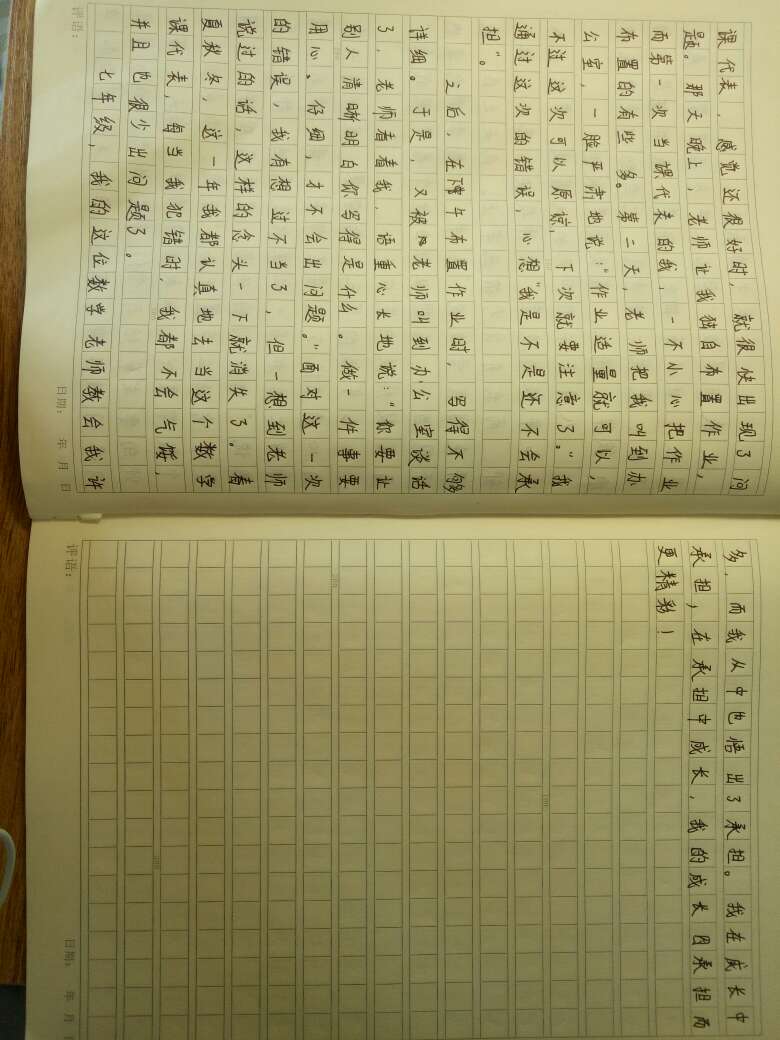 课代表，感觉还很好时，就很快出现了问
题。那天晚上，老师让我独自布置作业，
而第一次当课代表的我，一不小心把作业
布置的有些多。第二天，老师把我叫到办
公室，一脸严肃地说：“作业适量就可以，
不过这次可以原谅，下次就要注意了。”我
通过这次的错误，心想“我是不是还不会承
担”。
之后，在中午布置作业时，写得不够
详细。于是，又被老师叫到办公室谈话
了，老师看着我，语重心长地说：“你要让
别人清晰明白你写得是什么。做一件事要
用心。仔细，才不会出问题。”面对这一次
的错误，我有想过不当了，但一想到老师
说过的话，这样的念头一下就消失了。春
夏秋冬，这一年我都认真地去当这个数学
课代表，每当我犯错时，我都不会气馁，
并且也很少出问题了。
七年级，我的这位数学老师教会我许
评语：
日期： 年 月 日
多，而我从中也悟出了承担。我在成长中
承担，在承担中成长，我的成长因承担而
更精彩！
评语：
日期： 年 月